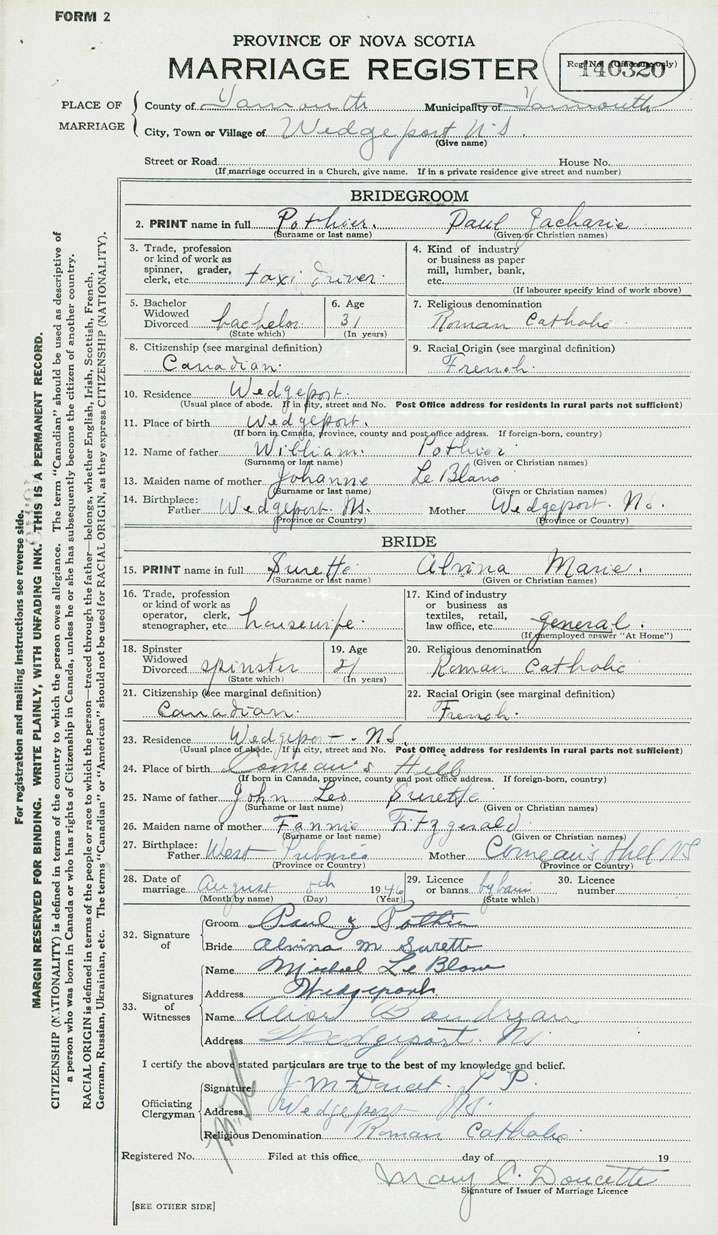 FORM 2
PROVINCE OF NOVA SCOTIA
MARRIAGE REGISTER
Reg. No. (Office use only)
140320
PLACE OF MARRIAGE
County of Yarmouth Municipality of Yarmouth
City, Town or Village of Wedgeport N.S.
(Give name)
Street or Road House No.
(If marriage occurred in a Church, give name. If in a private residence give street and number)
BRIDEGROOM
2. PRINT name in full Pothier, Paul Zacharie
(Surname or last name) (Given or Christian names)
3. Trade, profession or kind of work as spinner, grader, clerk, etc. taxi driver.
4. Kind of industry or business as paper mill, lumber, bank, etc.
(If labourer specify kind of work above)
5. Bachelor Widowed Divorced bachelor (State which)
6. Age 31 (In years)
7. Religious denomination Roman Catholic
8. Citizenship (see marginal definition) Canadian.
9. Racial Origin (see marginal definition) French.
10. Residence Wedgeport.
(Usual place of abode. If in city, street and No. Post Office address for residents in rural parts not sufficient)
11. Place of birth Wedgeport.
(If born in Canada, province, county and post office address. If foreign-born, country)
12. Name of father William Pothier
(Surname or last name) (Given or Christian names)
13. Maiden name of mother Johanne Le Blanc
(Surname or last name) (Given or Christian names)
14. Birthplace: Father Wedgeport. NS. Mother Wedgeport. NS.
(Province or Country) (Province or Country)
BRIDE
15. PRINT name in full Surette Alvina Marie.
(Surname or last name) (Given or Christian names)
16. Trade, profession or kind of work as operator, clerk, stenographer, etc. housewife.
17. Kind of industry or business as textiles, retail, law office, etc. general.
(If unemployed answer "At Home")
18. Spinster Widowed Divorced spinster (State which)
19. Age 21 (In years)
20. Religious denomination Roman Catholic
21. Citizenship (see marginal definition) Canadian.
22. Racial Origin (see marginal definition) French.
23. Residence Wedgeport - NS.
(Usual place of abode. If in city, street and No. Post Office address for residents in rural parts not sufficient)
24. Place of birth Comeau's Hill
(If born in Canada, province, county and post office address. If foreign-born, country)
25. Name of father John Leo Surette
(Surname or last name) (Given or Christian names)
26. Maiden name of mother Fannie Fitzgerald
(Surname or last name) (Given or Christian names)
27. Birthplace: Father West Pubnico Mother Comeau's Hill NS
(Province or Country) (Province or Country)
28. Date of marriage August 1946
(Month by name) (Day) (Year)
29. Licence or banns by bann (State which)
30. Licence number
32. Signature of
Groom Paul Z Pothier
Bride Alvina M Surette
33. Signatures of Witnesses
Name Michel Le Blanc
Address Wedgeport.
Name Boudreau
Address Wedgeport. NS
I certify the above stated particulars are true to the best of my knowledge and belief.
Officiating Clergyman
Signature J M Doucet. P P.
Address Wedgeport NS.
Religious Denomination Roman Catholic
Registered No. Filed at this office, day of 19
Mary C. Doucette
Signature of Issuer of Marriage Licence
[SEE OTHER SIDE]
For registration and mailing instructions see reverse side.
MARGIN RESERVED FOR BINDING. WRITE PLAINLY, WITH UNFADING INK. THIS IS A PERMANENT RECORD.
CITIZENSHIP (NATIONALITY) is defined in terms of the country to which the person owes allegiance. The term "Canadian" should be used as descriptive of
a person who was born in Canada or who has rights of Citizenship in Canada, unless he or she has subsequently become the citizen of another country.
RACIAL ORIGIN is defined in terms of the people or race to which the person—traced through the father—belongs, whether English, Irish, Scottish, French,
German, Russian, Ukrainian, etc. The terms "Canadian" or "American" should not be used for RACIAL ORIGIN, as they express CITIZENSHIP (NATIONALITY).